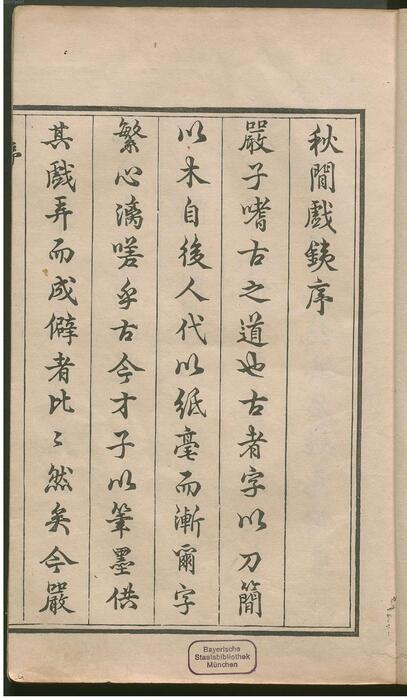 秋閒戲銕序
嚴子嗜古之道也古者字以刀簡
以木自後人代以紙毫而漸爾字
繁心漓嗟乎古今才子以筆墨供
其戲弄而成僻者比〻然矣今嚴
Bayerische
Staatsbibliothek
München